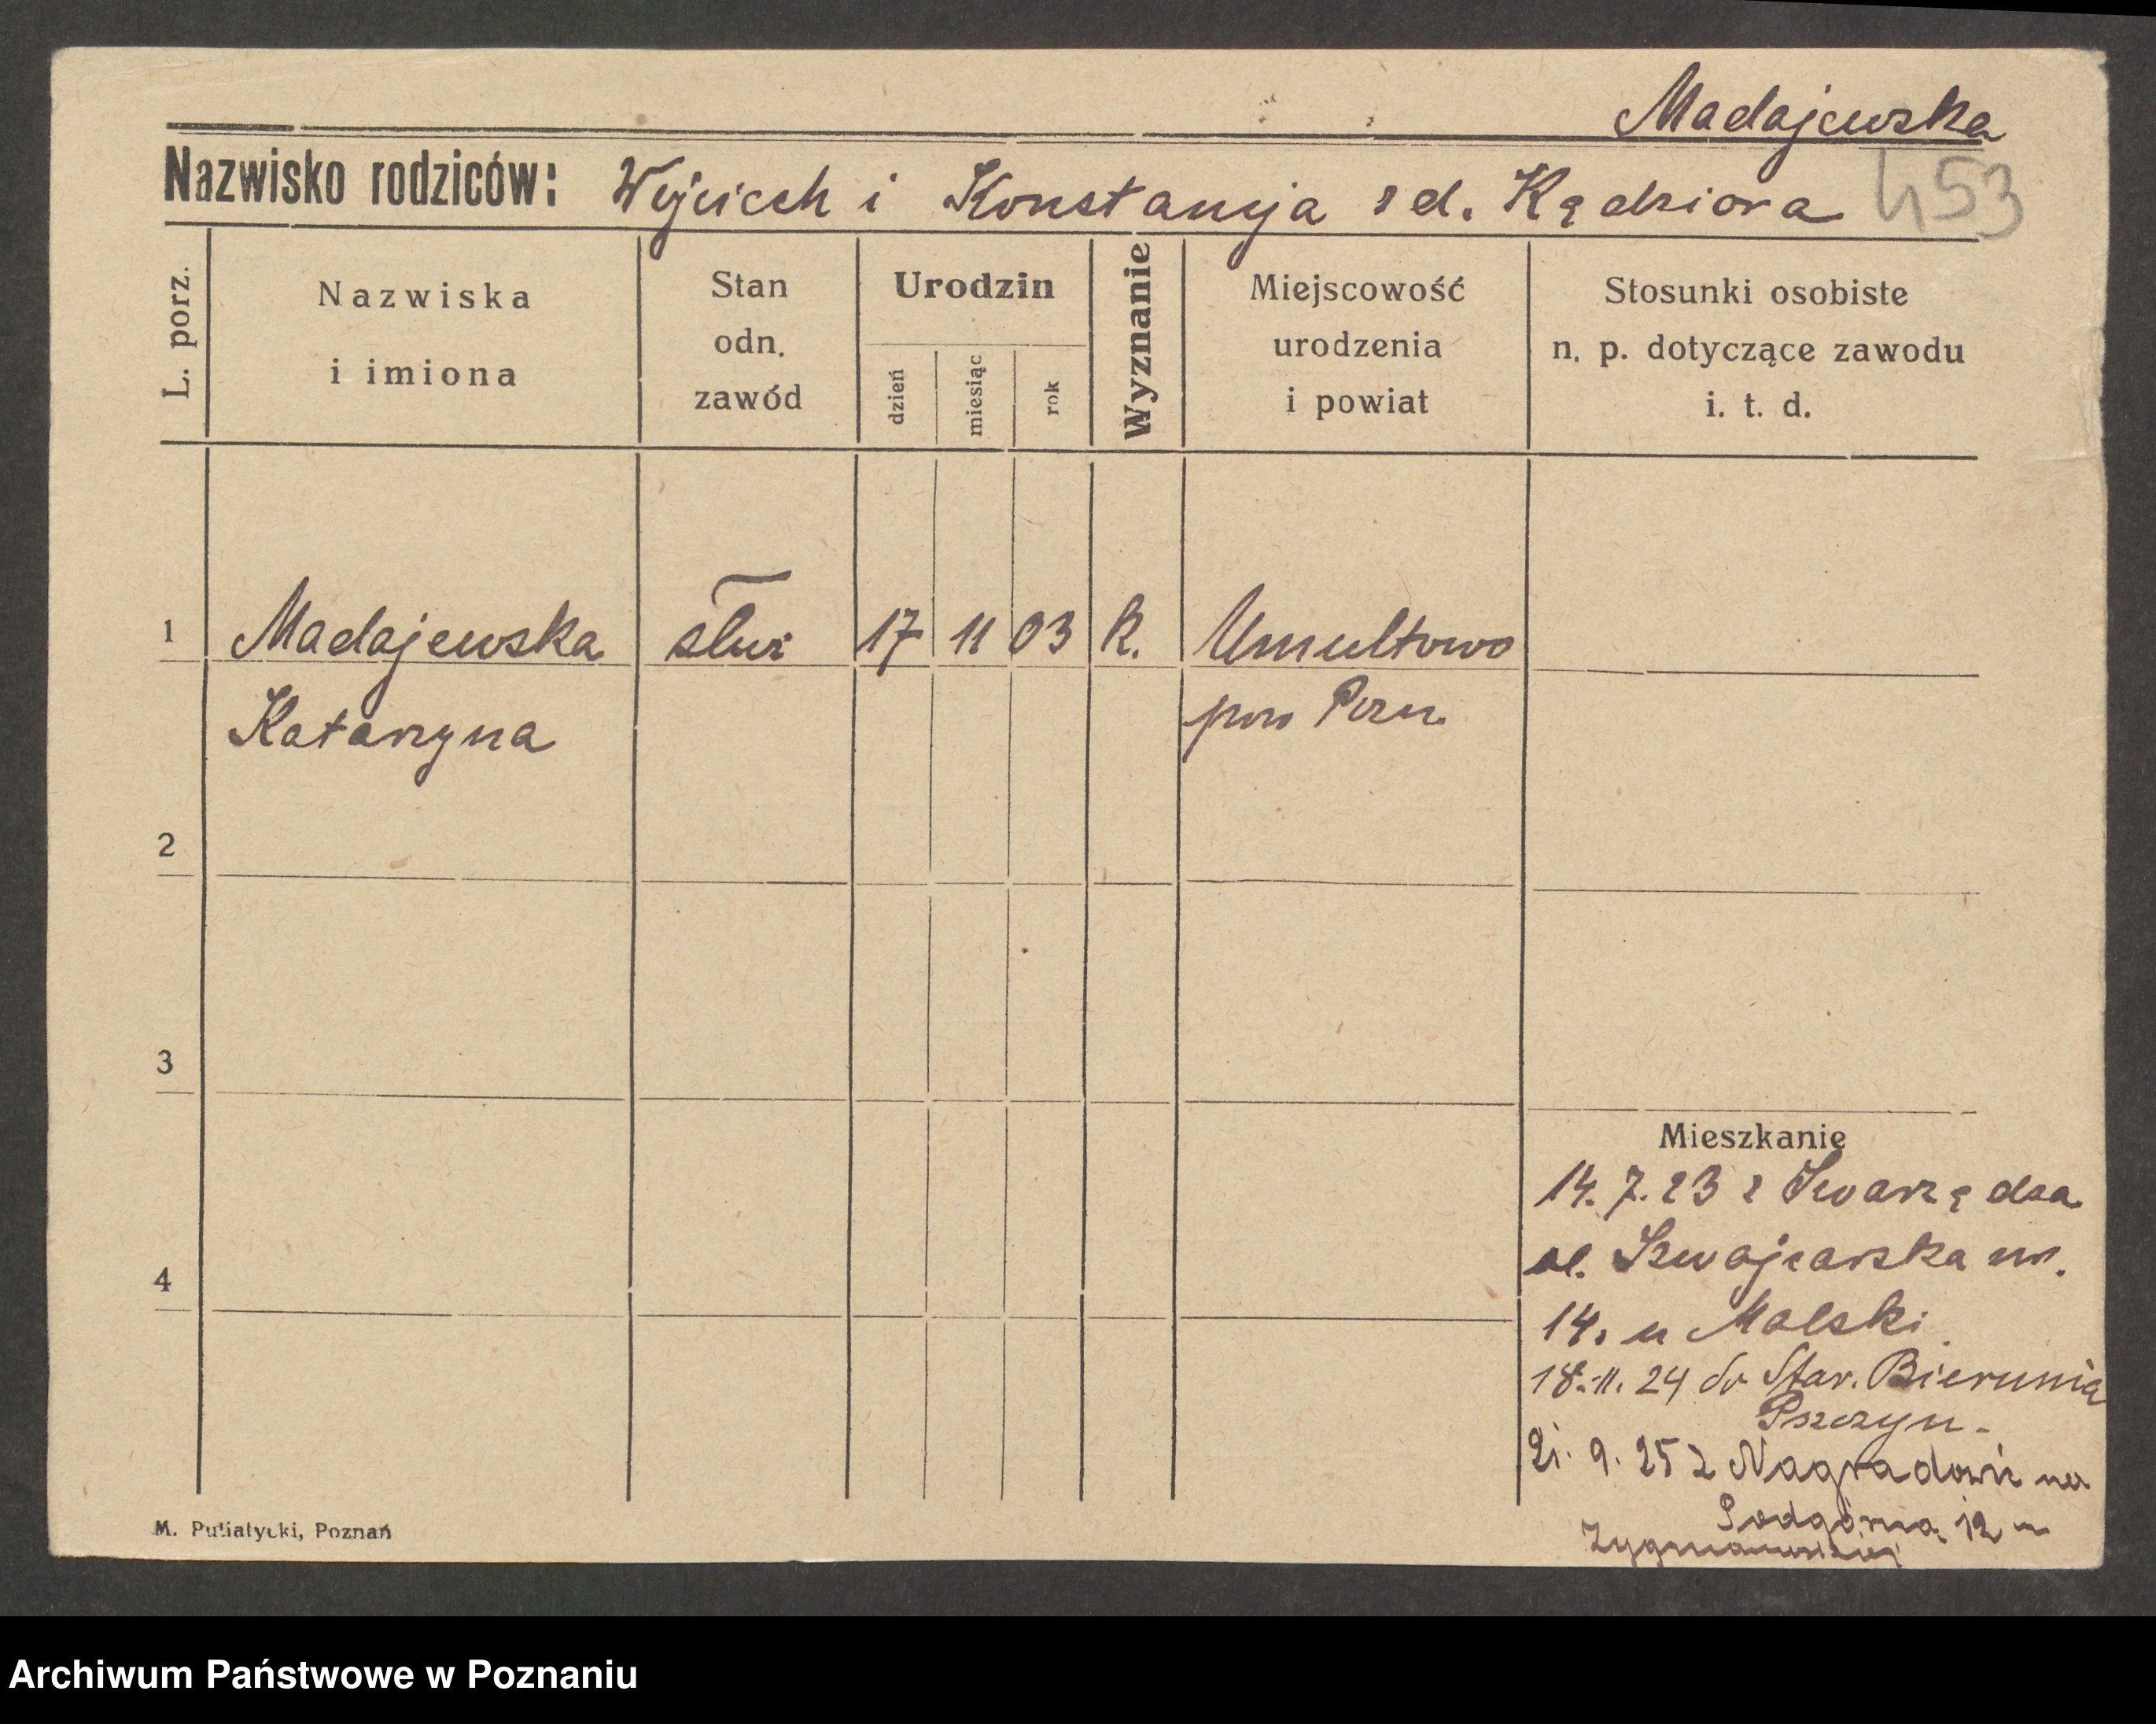 Madajewska
Nazwisko rodziców: Wojciech i Konstancja z d. Kędziora 453
L. porz.
Nazwiska
i imiona
Stan
odn.
zawód
Urodzin
dzień
miesiąc
rok
Wyznanie
Miejscowość
urodzenia
i powiat
Stosunki osobiste
n. p. dotyczące zawodu
i. t. d.
1 Madajewska służ 17 11 03 K. Umultowo
Katarzyna pow Pozn.
2
3
Mieszkanie
14. 7. 23 z Swarzędza
ul. Szwajcarska nr.
4
14. u Malski
18. 11. 24 do Star. Bierunia
Pszczyn.
21. 9. 25 z Nagradowic na
Podgórną 12 u
M. Putiatycki, Poznań
Archiwum Państwowe w Poznaniu